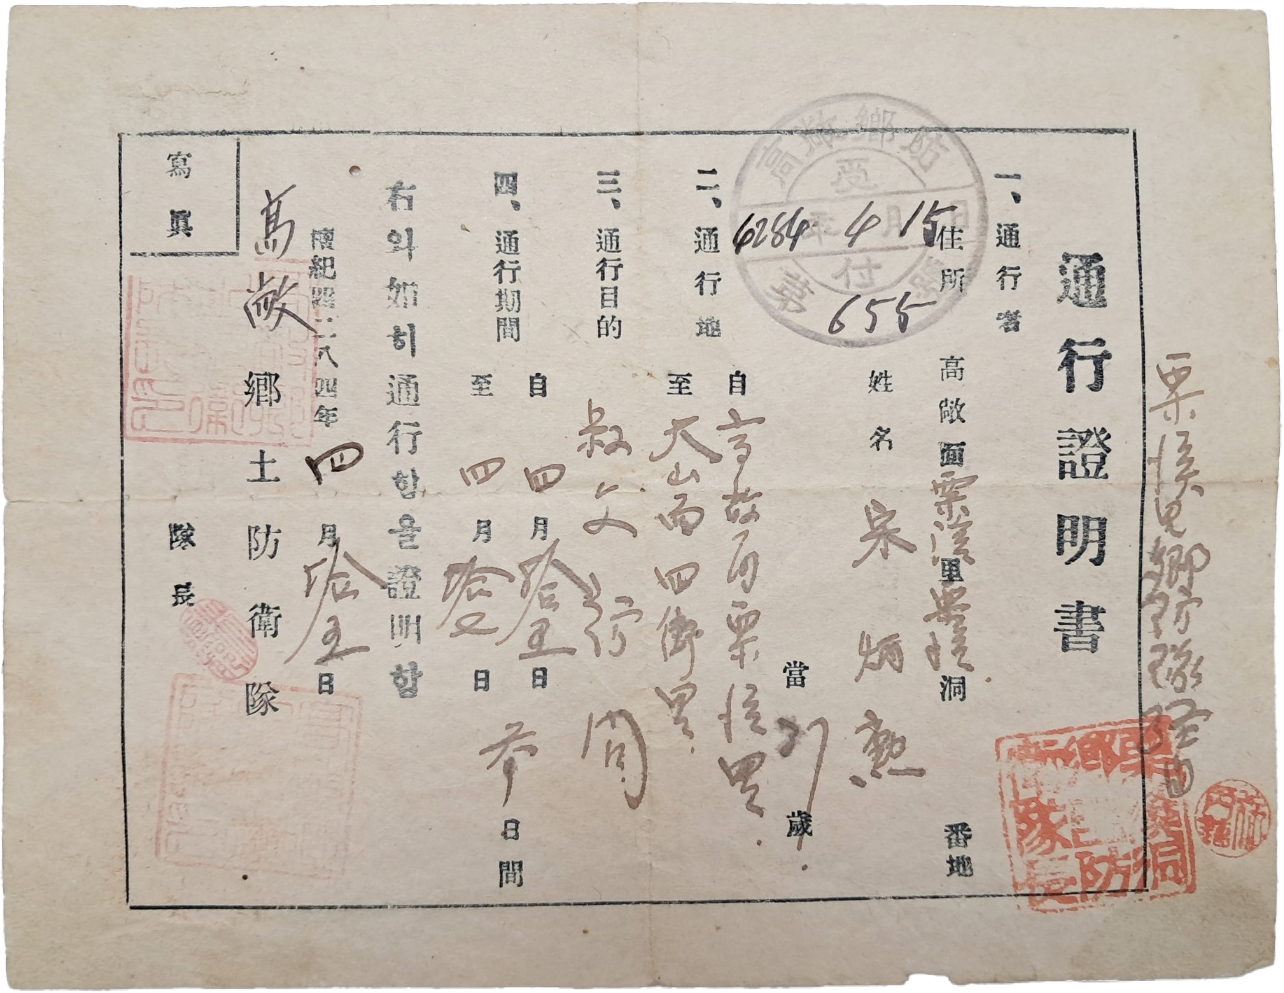 栗溪里鄕防隊経由
通行證明書
一、通行者
住所 高敞面栗溪里栗溪洞 番地
姓名 宋炳勳 當 歲
二、通行地
自 高敞面栗溪里
至 大山面 里
三、通行目的 叔父 問
四、通行期間
自 四月拾五日
至 四月拾七日
參日間
右와如히通行함을證明함
檀紀四二八四年四月拾五日
高敞鄕土防衛隊
隊長
寫眞
高敞鄕防
受付
4284年4月15日
第655號